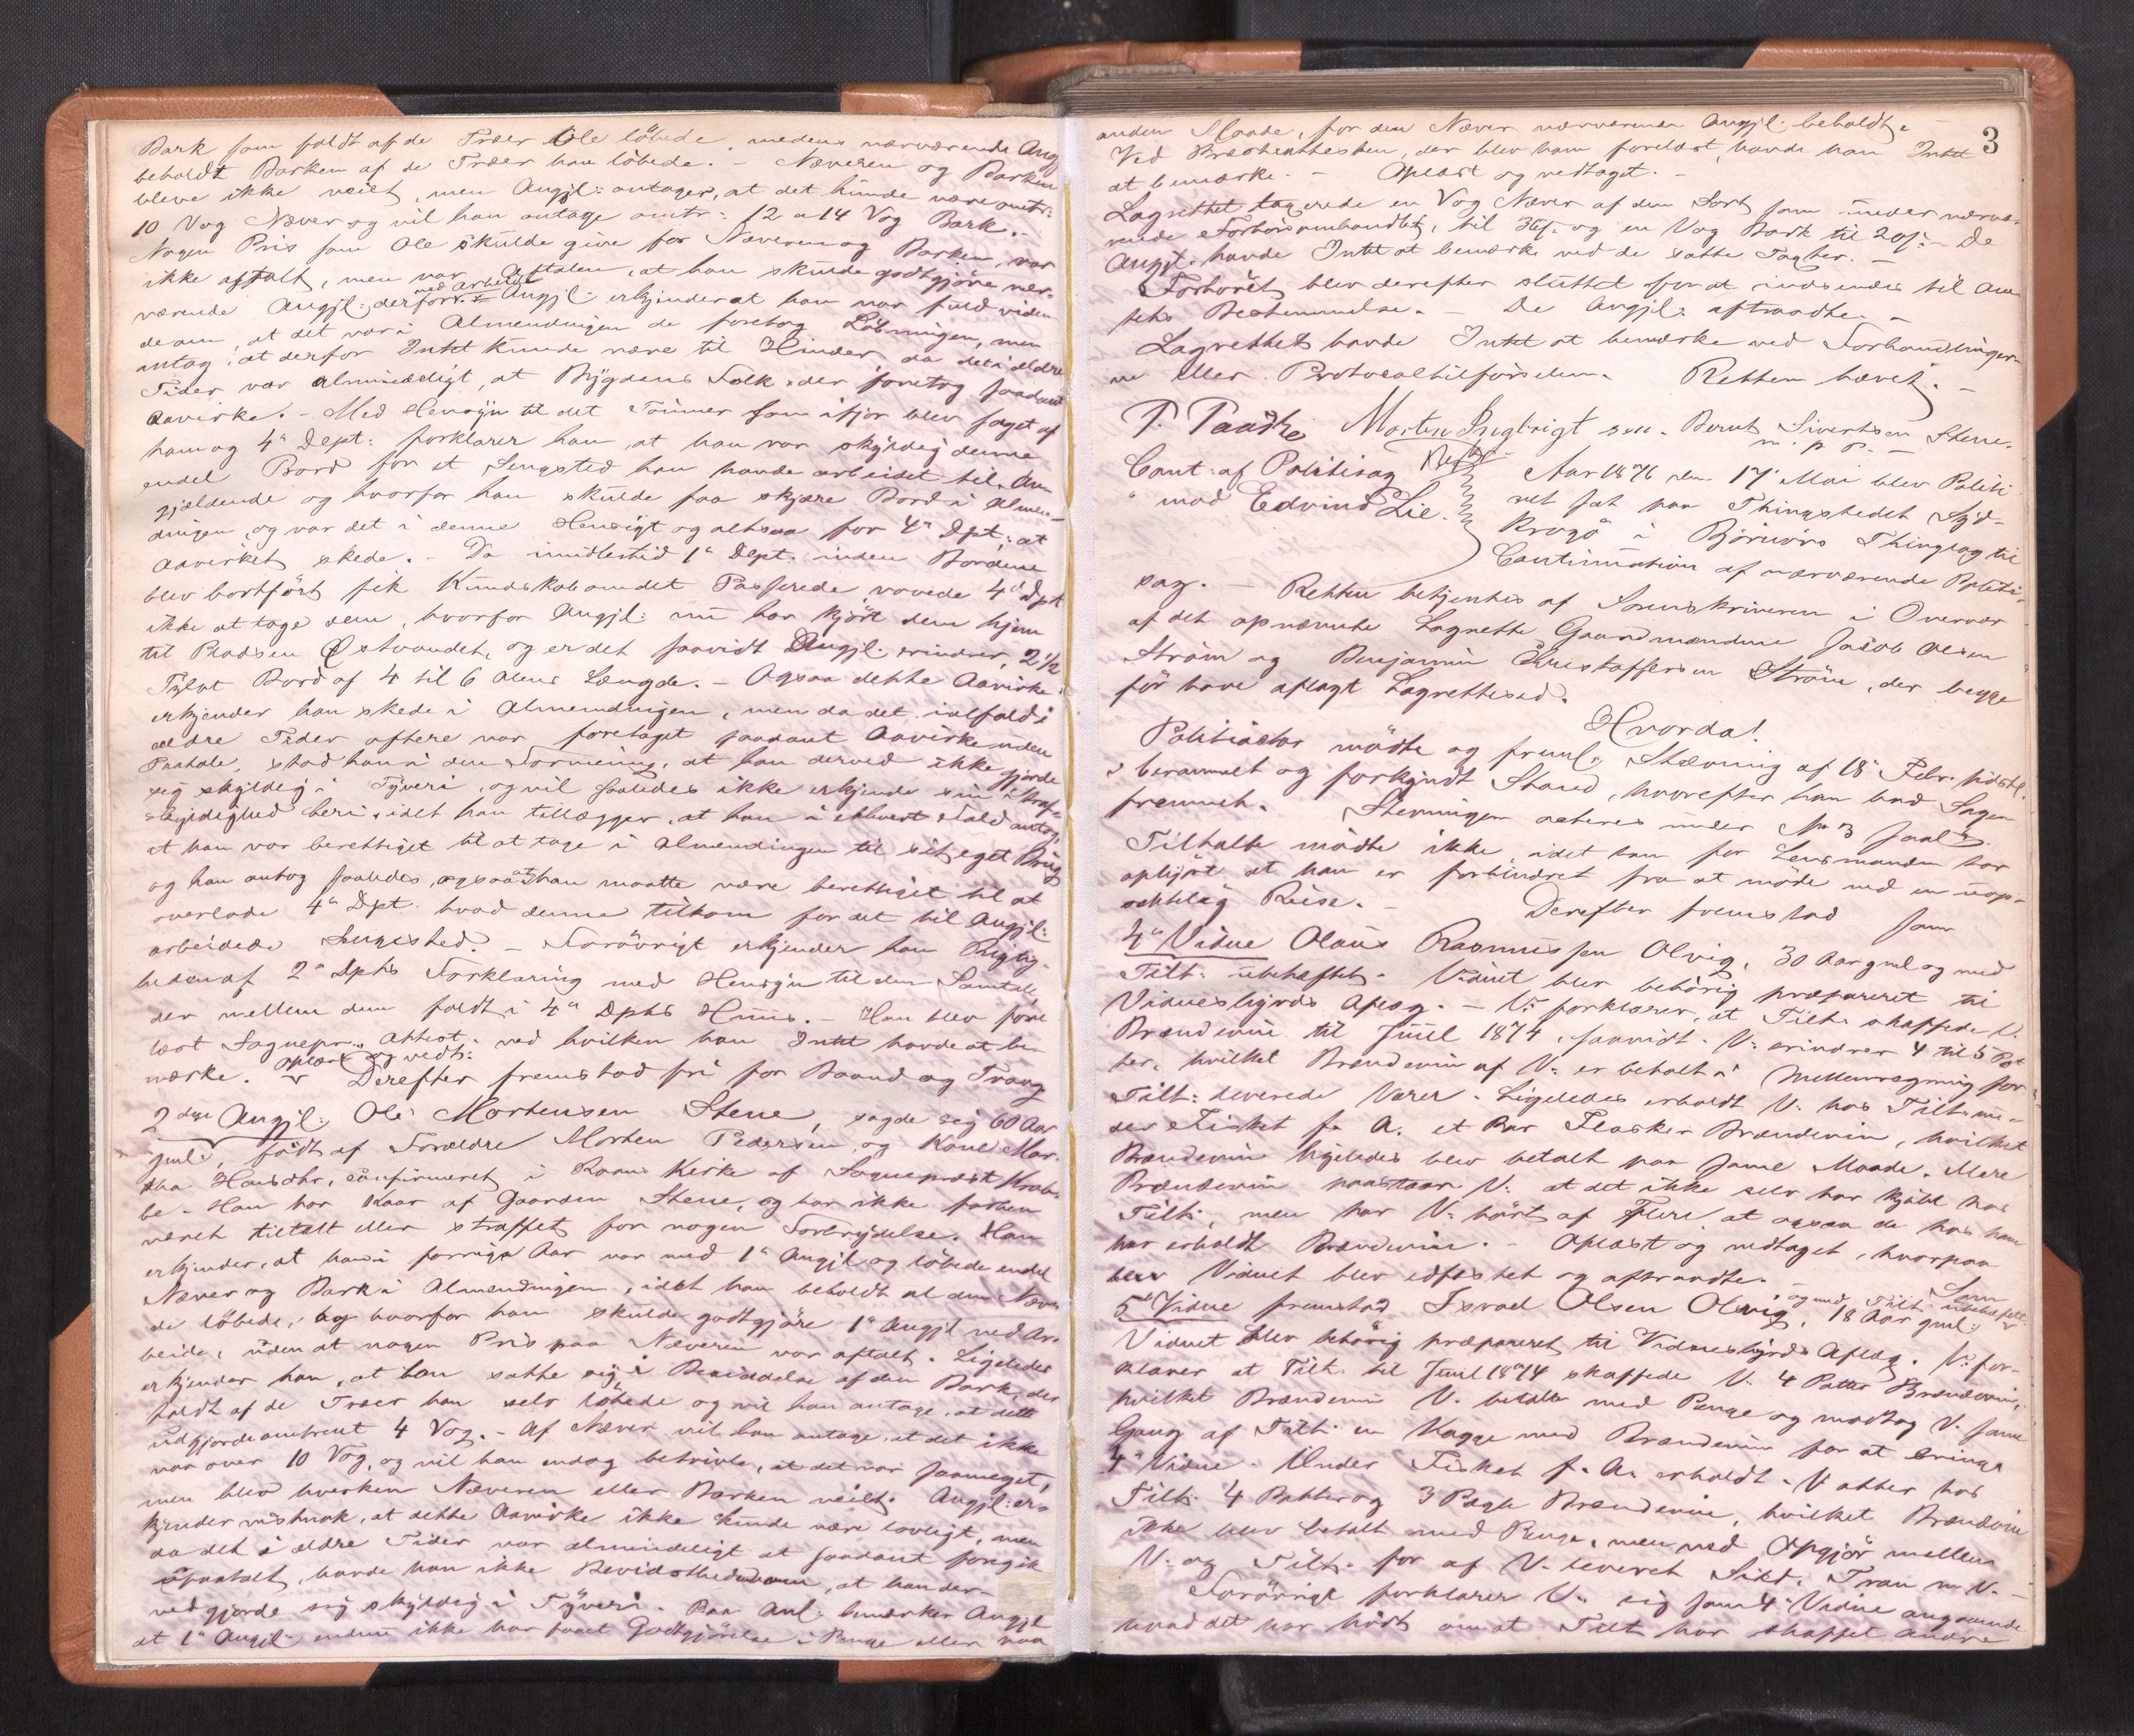 Bark som faldt af de Træer Ole löbede, medens nærværende Ang
beholdt Barken af de Træer han löbede. – Næveren og Barken
bleve ikke veiet, men Angjl: antager, at det kunde være omtr:
10 Vog Næver og vil han antage omtr: 12 a 14 Vog Bark. –
Nogen Pris som Ole skulde give for Næveren og Barken var
ikke aftalt, men var Aftalen, at han skulde godtgjöre nær-
værende Angjl: derfor med Arbeide. – Angjl: erkjender at han var fuldviden
de om, at det var i Almendingen de foretog Löbningen, men
antog, at derfor Intet kunde være til Hinder, da det i ældre
Tider var almindeligt, at Bygdens Folk der foretog saadant
Aavirke. – Med Hensyn til det Tömmer som ifjor blev saget af
ham og 4de Dept: forklarer han at han var skyldig denne
endel Bord for et Sengsted han havde arbeidet til An-
gjældende og hvorfor han skulde faa skjære Bord i Almen-
dingen, og var det i denne Hensigt og altsaa for 4de Dpt: at
Aavirket skede. – Da imidlertid 1ste Dept. inden Bordene
blev bortfört fik Kundskab om det Passerede, vovede 4de Dpt
ikke at tage dem, hvorfor Angjl: nu har kjört dem hjem
til Pladsen Östvandet, og er det saavidt Angjl. erindrer, 2 1/2
Tylvt Bord af 4 til 6 Alens Længde. – Ogsaa dette Aavirke
erkjender han skede i Almendingen, men da det ialfald i
ældre Tider oftere var foretaget saadant Aavirke uden
Paatale, stod han i den Formening, at han derved ikke gjorde
sig skyldig i Tyveri, og vil saaledes ikke erkjende sin Straf-
skyldighed heri, idet han tillægger, at han i ethvert Fald antog,
at han var berettiget til at tage i Almendingen til sit eget Brug
og han antog saaledes, ogsaa at han maatte være berettiget til at
overlade 4de Dpt. hvad denne tilkom for det til Angjl:
arbeidede Sengsted. – Forövrigt erkjender han Rigtig-
heden af 2den Dpts Forklaring med Hensyn til den Samtale,
der mellem dem faldt i 4de Dpts Huus. – Han blev fore
læst Sognepr... Attest, ved hvilken han Intet havde at be-
mærke. Oplæst og vedt: Derefter fremstod fri for Baand og Tvang
2den Angjl: Ole Mortensen Stene, sagde sig 60 Aar
gml., födt af Forældre Morten Pedersen og Kone Mar-
tha Hansdtr, confirmeret i Roans Kirke af Sognepræst Krab-
be. – Han har Kaar af Gaarden Stene, og har ikke forhen
været tiltalt eller straffet for nogen Forbrydelse. Han
erkjender, at han i forrige Aar var med 1ste Angjl og löbede endel
Næver og Bark i Almendingen, idet han beholdt al den Næver
de löbede, og hvorfor han skulde godtgjöre 1ste Angjl ved Ar-
beide, uden at nogen Pris paa Næveren var aftalt. Ligeledes
erkjender han, at han satte sig i Besiddelse af den Bark, der
faldt af de Træer han selv löbede og vil han antage, at dette
udgjorde omtrent 4 Vog. – Af Næver vil han antage, at det ikke
var over 10 Vog, og vil han endog betvivle, at det var saameget,
men blev hverken Næveren eller Barken veiet. Angjl: er-
kjender vistnok, at dette Aavirke ikke kunde være lovligt, men
da det i ældre Tider var almindeligt at saadant foregik
upaatalt, havde han ikke Bevidstheden om, at han der-
ved gjorde sig skyldig i Tyveri. Paa Anl: bemærker Angjl
at 1ste Angjl: endnu ikke har faaet Godtgjörelse i Penge eller paa
3
anden Maade, for den Næver nærværende Angjl. beholdt. –
Ved Præsteattesten, der blev ham forelæst, havde han Intet
at bemærke. – Oplæst og vedtaget. –
Lagrettet taxerede en Vog Næver af den Sort som under nærvæ-
rende Forhör omhandlet, til 36 s. og en Vog Bark til 20 s. – De
Angjl. havde Intet at bemærke ved de satte Taxter. –
Forhöret blev derefter sluttet for at indsendes til Am-
tets Bestemmelse. – De Angjl. aftraadte. –
Lagrettet havde Intet at bemærke ved Forhandlinger-
ne eller Protocoltilförselen. Retten hævet. –
P. Paadhe Morten Ingbrigtsen. Bernt Sivertsen Stene.
m. p. P.
Cont: af Politisag
mod Edvind Lie.
Aar 1876 den 17. Mai blev Politi
ret sat paa Thingstedet Syd-
krogö i Björnörs Thinglag til
Continuation af nærværende Politi-
sag. – Retten betjentes af Sorenskriveren i Overvær
af det opnævnte Lagrette Gaardmændene Jacob Olsen
Ström og Benjamin Christoffersen Ström, der begge
för have aflagt Lagretteed.
Hvorda!
Politiactor mödte og freml. Stævning af 18de Febr. sidstl.
i berammet og forkyndt Stand, hvorefter han bad Sagen
fremmet. Stevningen acteres under No 3 saal:
Tiltalte mödte ikke, idet han for Lensmanden har
oplyst at han er forhindret fra at möde ved en uop-
sættelig Reise. – Derefter fremstod som
4de Vidne Olaus Rasmussen Olvig, 30 Aar gml og med
Tilt: ubehæftet. Vidnet blev behörig præpareret til
Vidnesbyrds Aflæg. – V: forklarer, at Tilt: skaffede V.
Brændevin til Juul 1874, saavidt V: erindrer 4 til 5 Pot-
ter, hvilket Brændevin af V: er betalt i Mellemregning for
Tilt: leverede Varer. Ligeledes erholdt V. hos Tilt: un-
der Fisket f. A. et Par Flasker Brændevin, hvilket
Brændevin ligeledes blev betalt paa samme Maade. Mere
Brændevin paastaar V: at det ikke selv har kjöbt hos
Tilt:, men har V: hört af Flere, at ogsaa de hos ham
har erholdt Brændevin. – Oplæst og vedtaget, hvorpaa
Vidnet blev edfæstet og aftraadte. – Som
5te Vidne fremstod Israel Olsen Olvig, 18 Aar gml: og med Tilt. ubehæftet.
Vidnet blev behörig præpareret til Vidnesbyrds Aflæg. V: for-
klarer at Tilt. til Juul 1874 skaffede V. 4 Potter Brændevin,
hvilket Brændevin V. betalte med Penge og modtog V. samme
Gang af Tilt: en Kagge med Brændevin for at bringe
4de Vidne. Under Fisket f. A. erholdt V. atter hos
Tilt: 4 Potter og 3 Pægle Brændevin, hvilket Brændevin
ikke blev betalt med Penge, men ved Opgjör mellem
V. og Tilt. for af V. leveret Sild, Tran m. V. –
Forövrigt forklarer V. sig som 4de Vidne angaaende
hvad det har hört om at Tilt har skaffet Andre